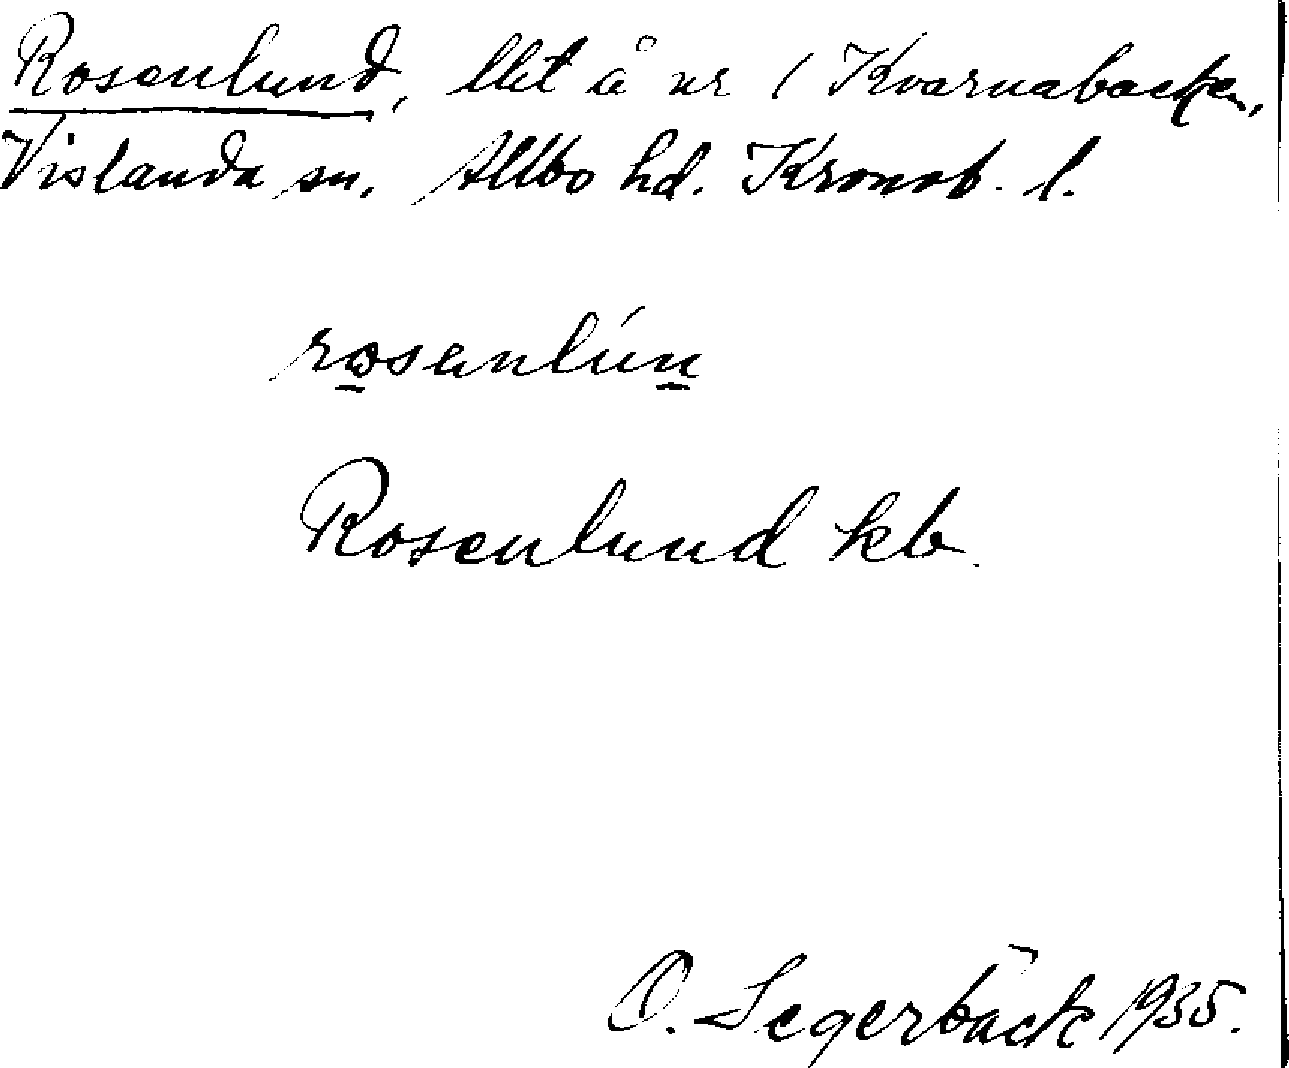 Rosenlund, llet å nr 1 Kvarnabacken,
Vislanda sn, Allbo hd. Kronob. l.
rosenlún
Rosenlund kb.
O. Segerbäck 1935.